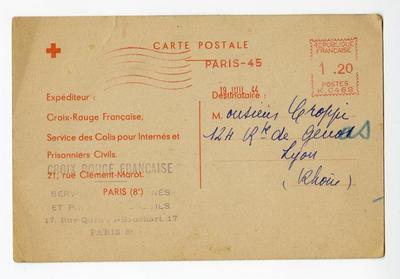 CARTE POSTALE
PARIS-45
RÉPUBLIQUE
FRANÇAISE
1.20
POSTES
K.0469
Expéditeur :
Croix-Rouge Française,
Service des Colis pour Internés et
Prisonniers Civils.
21, rue Clément-Marot.
PARIS (8e)
CROIX ROUGE FRANÇAISE
17, Rue 17
PARIS 8e
Destinataire :
Monsieur
124 Rte de
Lyon
(Rhône)